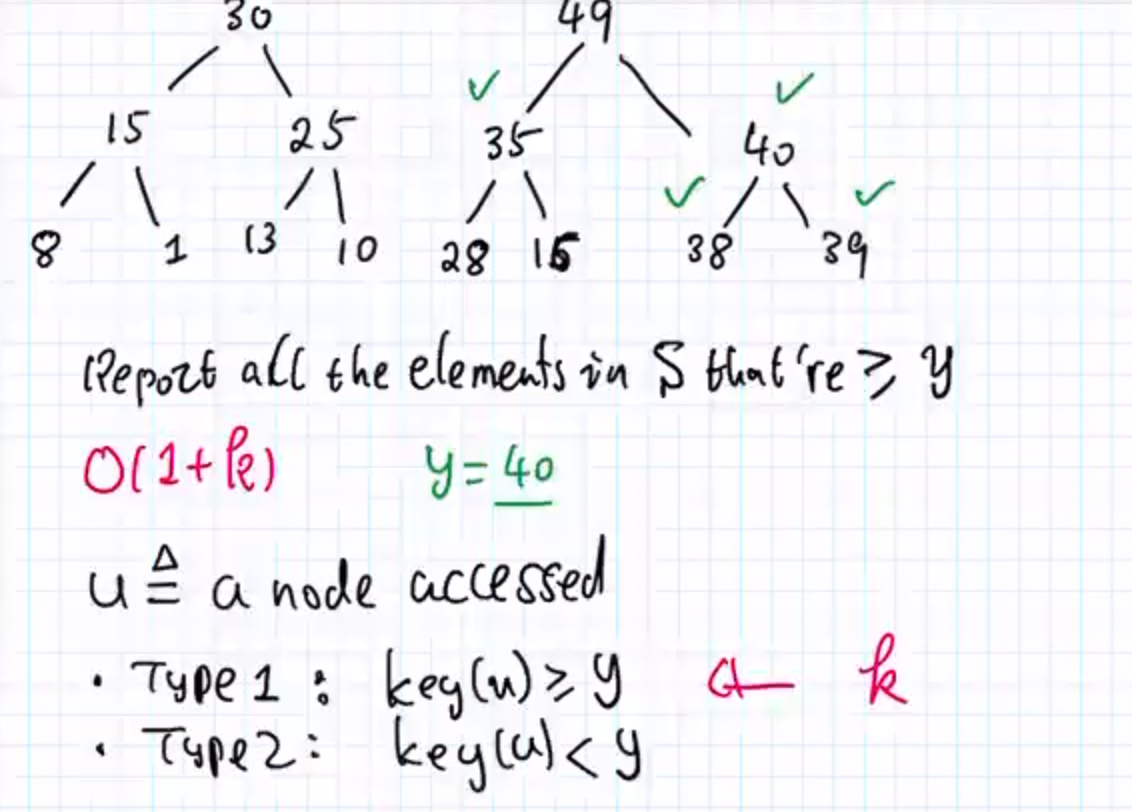 30 49
15 25 35 40
8 1 13 10 28 16 38 39
Report all the elements in S that're ≥ y
O(1+k) y=40
u ≜ a node accessed
· Type1 : key(u) ≥ y ← k
· Type2 : key(u) < y